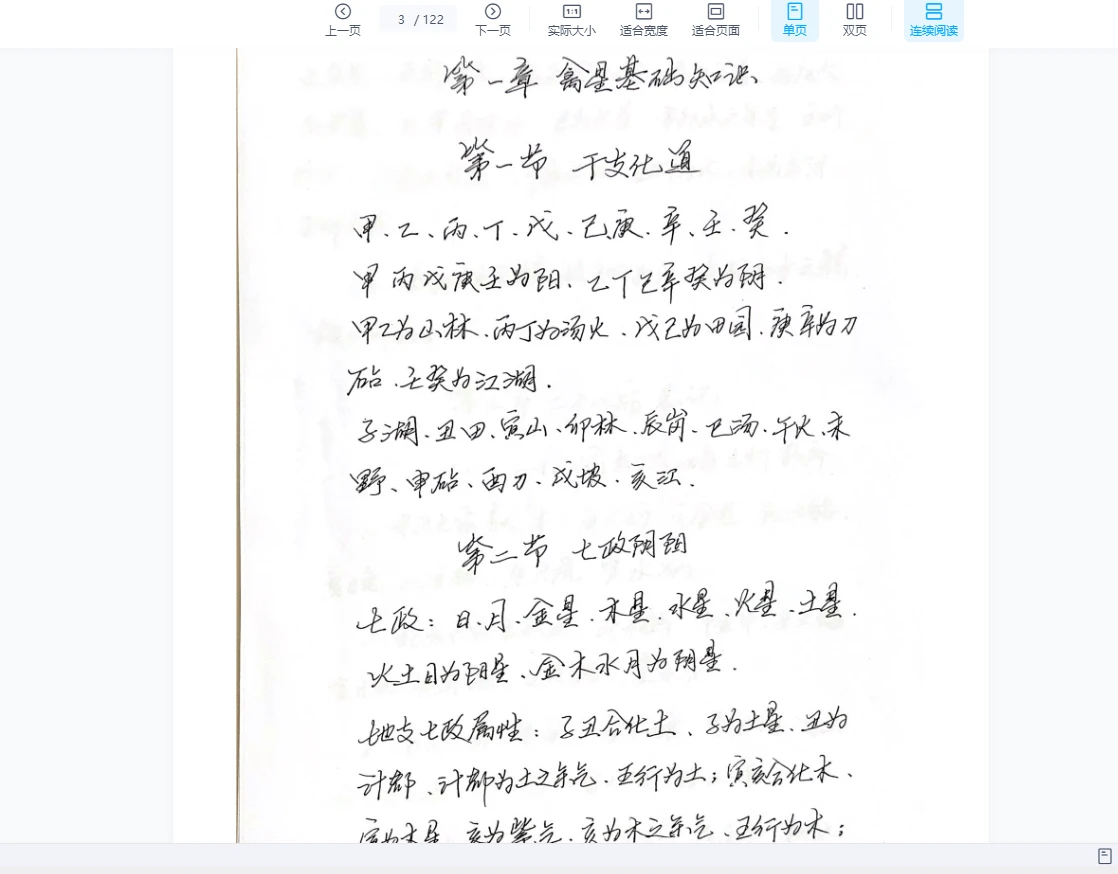 上一页 3 / 122 下一页 实际大小 适合宽度 适合页面 单页 双页 连续阅读
第一章 禽星基础知识
第一节 干支化道
甲、乙、丙、丁、戊、己、庚、辛、壬、癸.
甲丙戊庚壬为阳、乙丁己辛癸为阴.
甲乙为山林、丙丁为汤火、戊己为田园、庚辛为刀
砧、壬癸为江湖.
子湖、丑田、寅山、卯林、辰岗、巳汤、午火、未
野、申砧、酉刀、戌坡、亥江.
第二节 七政阴阳
七政：日、月、金星、木星、水星、火星、土星.
火土日为阳星、金木水月为阴星.
地支七政属性：子丑合化土、子为土星、丑为
计都、计都为土之余气、五行为土；寅亥合化木、
寅为木星、亥为紫气、亥为木之余气、五行为木；